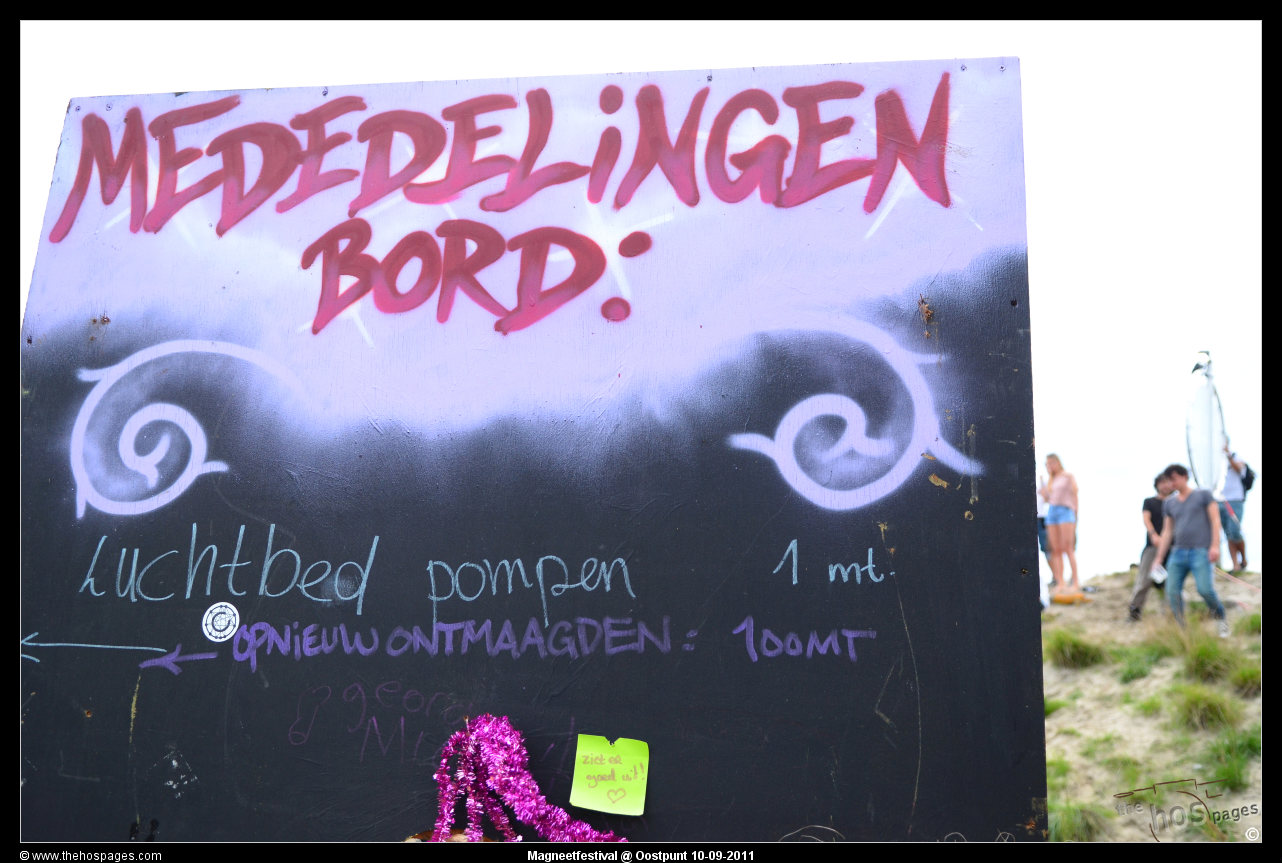 MEDEDELINGEN
BORD:
Luchtbed pompen 1 mt.
OPNIEUW ONTMAAGDEN: 100MT
ziet er
goed uit!
the hos pages
©
© www.thehospages.com
Magneetfestival @ Oostpunt 10-09-2011